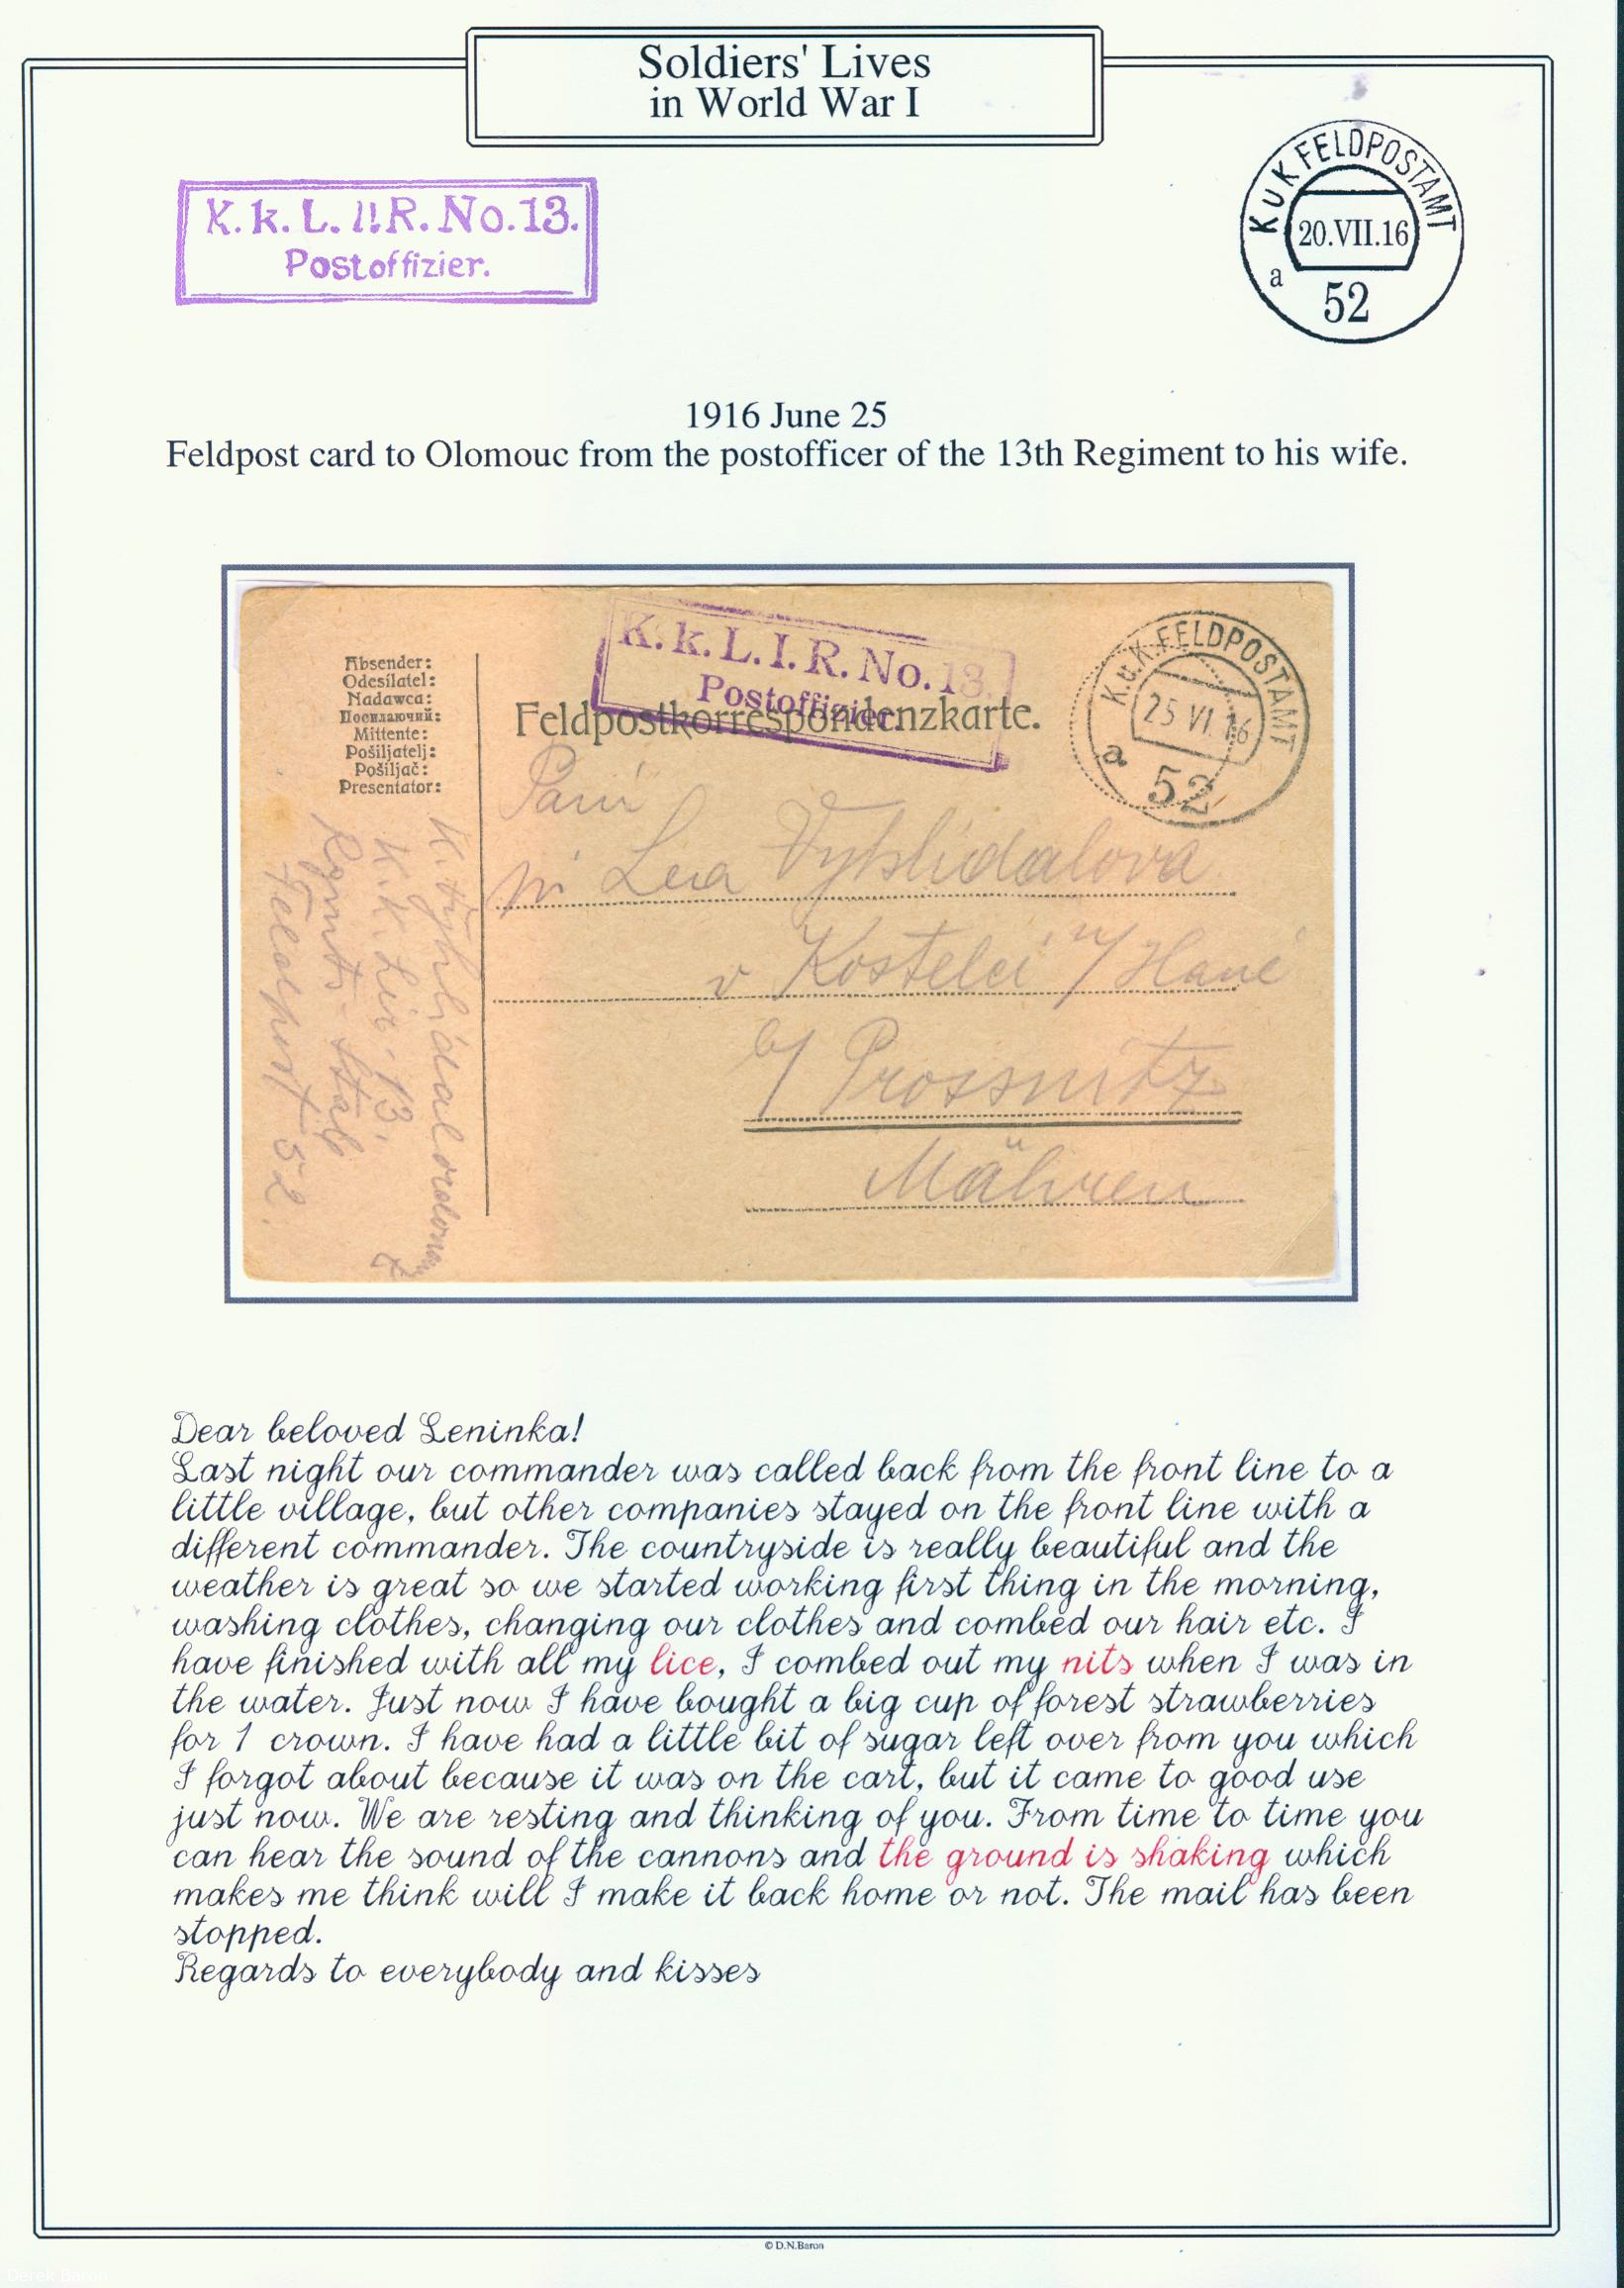 Soldiers' Lives
in World War I
K.k.L.I!R.No.13.
Postoffizier.
K u K FELDPOSTAMT
20.VII.16
a
52
1916 June 25
Feldpost card to Olomouc from the postofficer of the 13th Regiment to his wife.
K.k.L.I.R.No.13.
Postoffizier.
K.u.K.FELDPOSTAMT
25 VI. 16
a
52
Absender:
Odesílatel:
Nadawca:
Посилаючий:
Mittente:
Pošiljatelj:
Pošiljač:
Presentator:
Feldpostkorrespondenzkarte.
Paní
Vyhlídalová
v Kostelci n/Hané
b/ Prossnitz
Mähren
K.k. Lir. 13.
Rgmts-Stab
Feldpost 52.
Dear beloved Leninka!
Last night our commander was called back from the front line to a
little village, but other companies stayed on the front line with a
different commander. The countryside is really beautiful and the
weather is great so we started working first thing in the morning,
washing clothes, changing our clothes and combed our hair etc. I
have finished with all my lice, I combed out my nits when I was in
the water. Just now I have bought a big cup of forest strawberries
for 1 crown. I have had a little bit of sugar left over from you which
I forgot about because it was on the cart, but it came to good use
just now. We are resting and thinking of you. From time to time you
can hear the sound of the cannons and the ground is shaking which
makes me think will I make it back home or not. The mail has been
stopped.
Regards to everybody and kisses
© D.N.Baron
Derek Baron